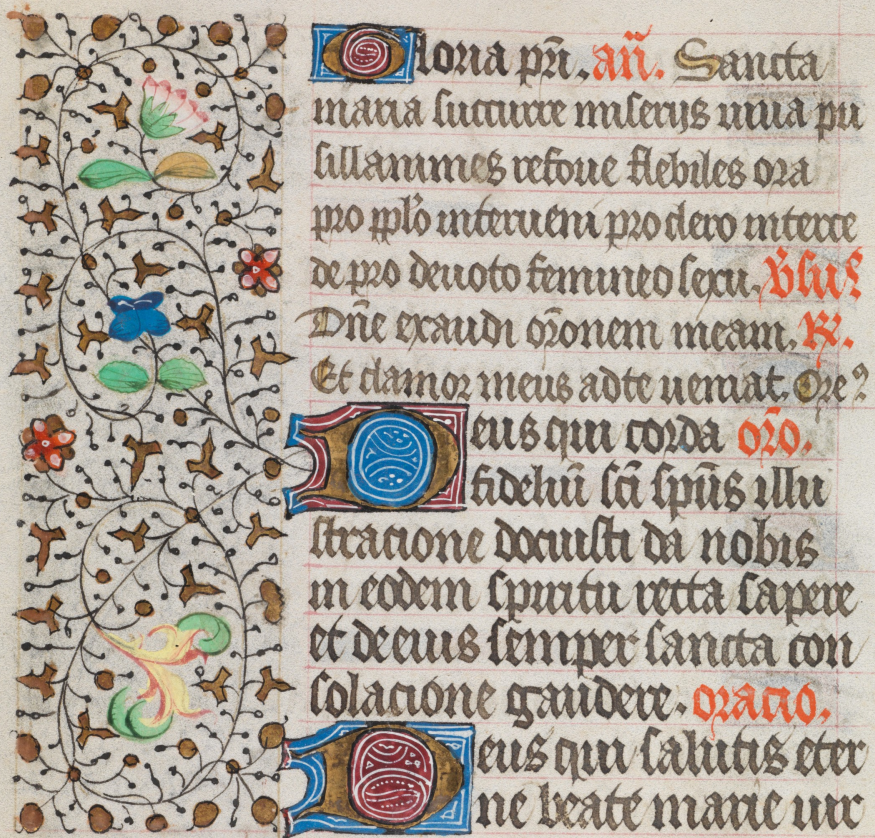 Gloria pr̃i. añ. Sancta
maria succurre miserijs iuua pu
sillanimes refoue flebiles ora
pro pplo interueni pro clero interce
de pro deuoto femineo sexu. Vsus
Dñe exaudi or̃onem meam. R.
Et clamor meus ad te ueniat. Ore?
Deus qui corda or̃o.
fideliũ sc̃i sp̃us illu
stracione docuisti da nobis
in eodem spiritu recta sapere
et de eius semper sancta con
solacione gaudere. oracio.
Deus qui salutis eter
ne beate marie uir